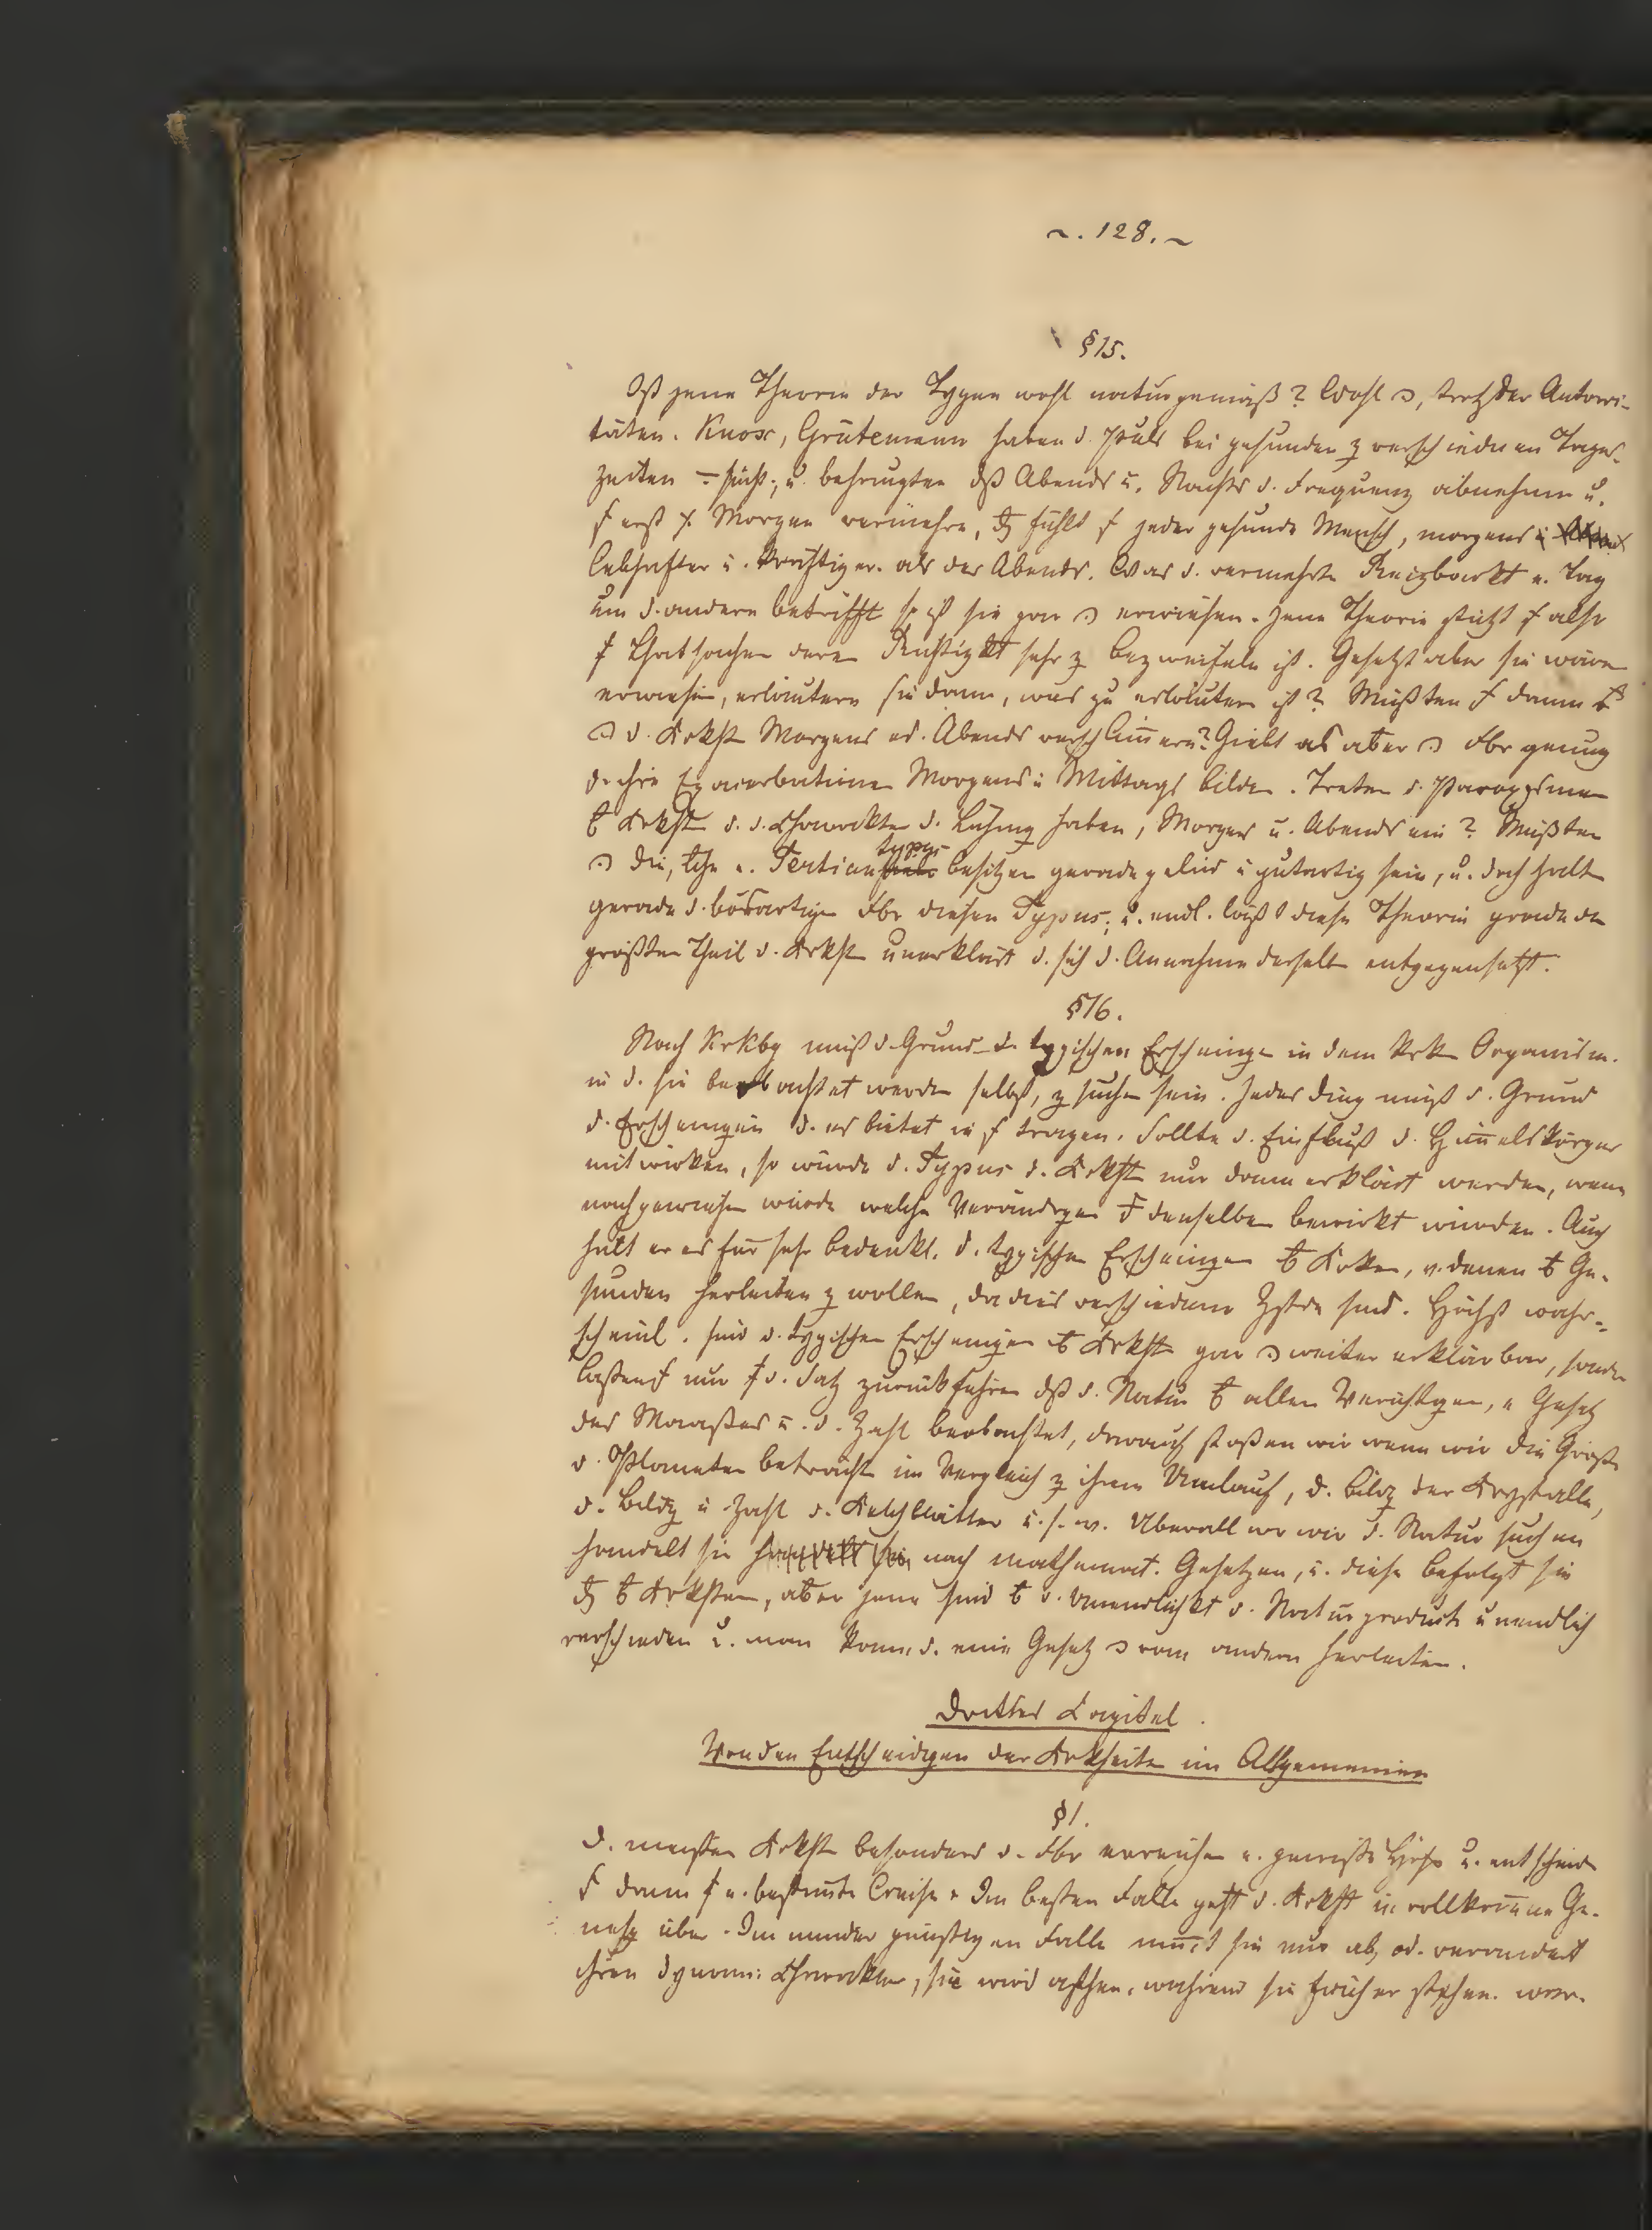 ~. 128. ~
§ 15.
Ist jene Theorie der Typen wohl naturgemäß? Wohl, trotz der Autori-
täten. Knox, Grutemann haben d. Puls bei gesunden z verschiednen Tages-
zeiten u. behaupten dß Abends u. Nachts d. Frequenz abnehme u.
erst Morgen vermehre, fühlt jeder gesunde Mensch, morgens
lebhafter u. kräftiger als des Abends. Was d. vermehrte Reizbarkt e. Tag
um d. andern betrifft so ist sie gar erwiesen. Jene Theorie stützt also
Thatsachen deren Richtigkt sehr z bezweifeln ist. Gesetzt aber sie wären
erwiesen, erläutern sie dann, was zu erläutern ist? Müßten dann
d. Krkht Morgens od. Abends verschlim̅ern? Giebt es aber Fbr genug
d. ihre Exacerbationen Morgens u Mittags bilden. Treten d. Paroxysmen
Krkht d. d. Charakter d. Lähmg haben, Morgens u. Abends ein? Müßten
die, e. Tertiantypus besitzen gerade gelind u gutartig sein, u. doch halten
gerade d. bösartigen Fbr diesen Typus; u. endl. läßt diese Theorie gerade den
größten Theil d. Krkht unerklärt d. sich d. Annahme derselb entgegensetzt.
§ 16.
Nach Krkby muß d. Grund d. typischen Erscheinge in dem Krk Organism.
in d. sie beobachtet werden selbst, z suchen sein. Jedes Ding muß d. Grund
d. Erscheingen d. es bietet in tragen. Sollte d. Einfluß d. Him̅elskörper
mitwirken, so würde d. Typus d. Krkht nur dann erklärt werden, wenn
nachgewiesen würde welche Verändrgen denselben bewirkt würden. Auch
hält er es für sehr bedenkl. d. typischen Erscheingen Krken, v. denen Ge-
sunden herleiten z wollen, da dies verschiedene Zstde sind. Höchst wahr-
scheinl. sind d. typischen Erscheingen Krkht gar weiter erklärbar, sonder
laßen nur d. Satz zurückführen dß d. Natur allen Verrichtgen, e Gesetz
des Maaßes u. d. Zahl beobachtet, darauf stoßen wir wenn wir die Größe
d. Planeten betracht im Vergleich z ihrem Umlauf, d. Bildg der Krystalle,
d. Bildg u Zahl d. Kelchblätter u. s. w. Überall wo wir d. Natur suchen
handelt sie nach mathemat. Gesetzen, u. diese befolgt sie
Krkhten, aber jene sind d. Unendlichkt d. Naturprodukte unendlich
verschieden u. man kann d. eine Gesetz vom andern herleiten.
Drittes Capitel.
Von den Entscheidgen der Krkheiten im Allgemeinen
§ 1.
D. meisten Krkht besonders d. Fbr erreichen e. gewisse Höhe u. entscheid
dann e. bestim̅te Weise. Im besten Falle geht d. Krkht in vollkom̅ene Ge-
nesg über. Im minder günstigen Falle nim̅t sie nur ab, od. verändert
ihren dynami: Charakter, sie wird asthen. während sie früher sthen. war.